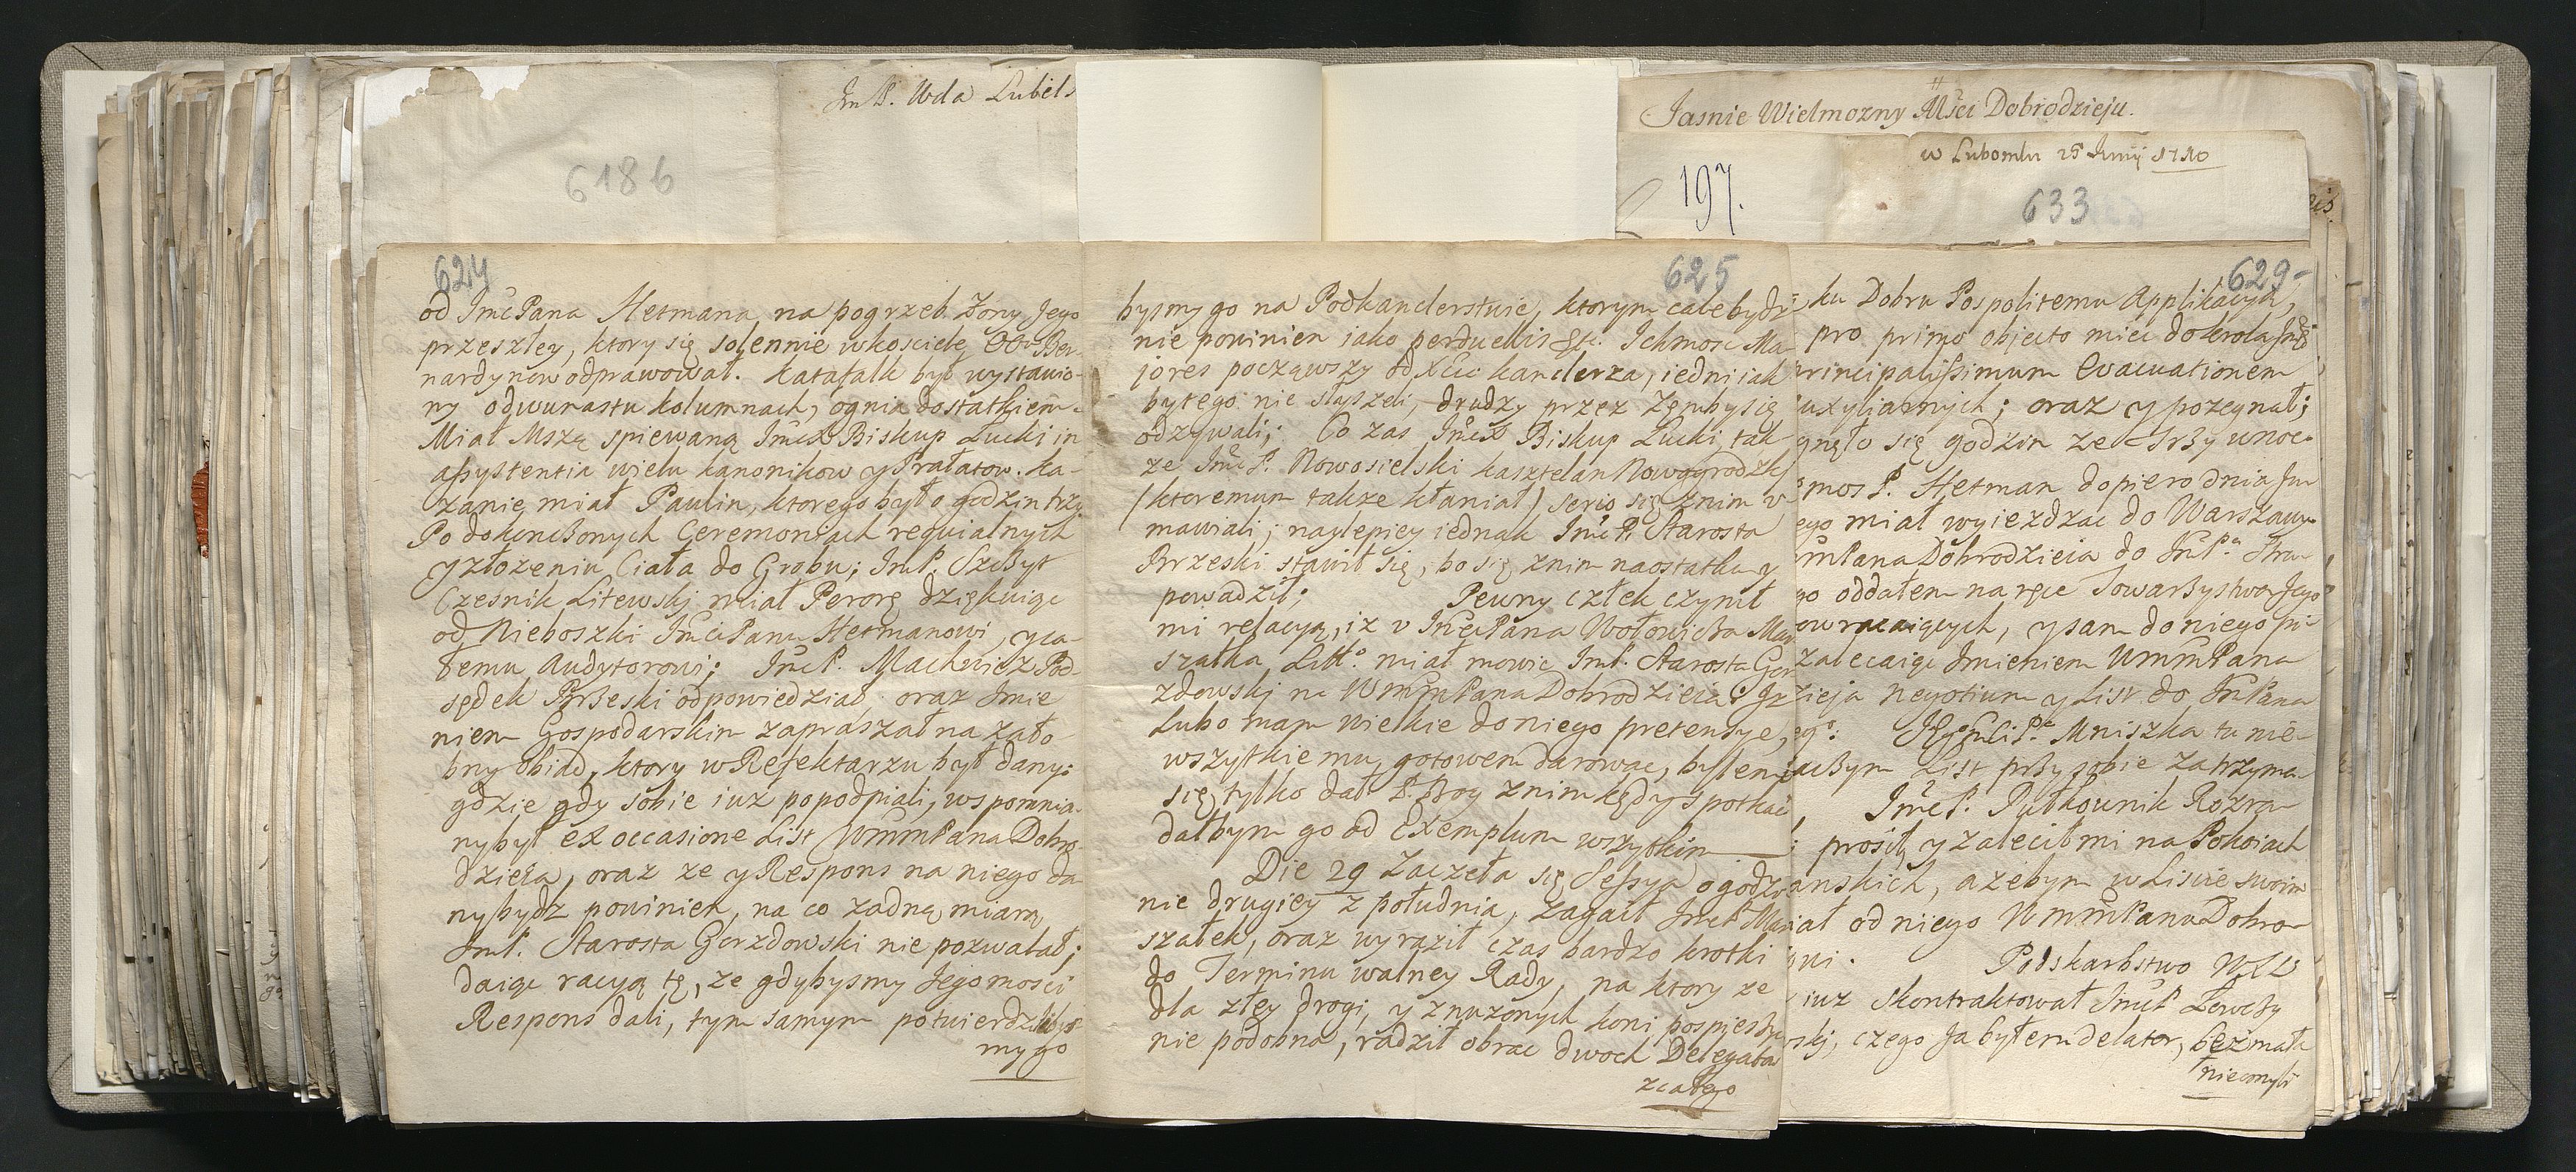 Im P. Wda Lubels
6186
Jasnie Wielmozny Msci Dobrodzieju.
w Lubomlu 25 Junij 1710
197.
633
624
od Jmc Pana Hetmana na pogrzeb Zony Jego
przeszłey, ktory się solennie w kosciele OO. Ber-
nardynow odprawował. Katafalk był wystawio-
ny o dwunastu kolumnach, ognia dostatkiem.
Miał Mszą spiewaną Jmc X Biskup Łucki in
assystentia wielu kanonikow y Prałatow. Ka-
zanie miał Paulin, ktorego było godzin trzy.
Po dokonczonych Ceremoniach requialnych
y złozeniu Ciała do Grobu; Jm P. Szczyt
Czesnik Litewskj miał Perorę dziękuiąc
od Nieboszki Jmci Panu Hetmanowi, y ca-
łemu Audytorowi; Jmc P. Mackiewicz Pod-
sędek Brzeski odpowiedział, oraz Imie
niem Gospodarskim zapraszał na zało-
bny obiad, ktory w Refektarzu był dany:
gdzie gdy sobie iuz popodpiali, wspomnia-
ny był ex occasione List WMM Pana Dobro-
dzieia, oraz ze y Respons na niego da
ny bydz powinien, na co zadną miarą
Jm P. Starosta Gorzdowski nie pozwalał;
daiąc racyą tę, ze gdybysmy Jegomosci
Respons dali, tym samym potwierdzilibys-
my go
625
bysmy go na Podkanclerstwie, ktorym cale bydz
nie powinien iako perduellis &c. Ichmosc Ma-
jores począwszy od XCia kanclerza, iedni iak
by tego nie słyszeli, drudzy przez Zemby się
odzywali; Co zas Jmc X Biskup Łucki, tak-
ze Jmc P. Nowosielski kasztelan Nowogrodzki
(ktoremum takze kłaniał) serio się z nim v
mawiali; naylepiey iednak Jmc P. Starosta
Brzeski stawił się, bo się z nim naostatku y
powadził; Pewny człek czynił
mi relacyą, iz v Jmc Pana Wołowicza Mar
szałka Litt: miał mowic Jm P. Starosta Gor
zdowskj na WMM Pana Dobrodzieia: Iz
Lubo mam wielkie do niego pretensye,
wszytkie mu gotowem darowac, byłem
się tylko dał P. Bog z nim kędy spotkac
dałbym go od Exemplum wszytkim
Die 29 Zaczeła się Sessya o godzi
nie drugiey z południa, zagaił Jmc P. Mar
szałek, oraz wyraził czas bardzo krotki
do Terminu walney Rady, na ktory ze
dla złey drogi, y znuzonych koni pospieszyc
nie podobna, radził obrac dwoch Delegatow
z całego
629
ku Dobru Pospolitemu Applikacyi,
pro primo objecto miec do krola Jmci
principalissimum Evacuationem
auxyliarnych; oraz y pozegnał;
gnęło się godzin ze trzy w noc.
mos P. Hetman dopiero dnia Ju
ego miał wyiezdzac do Warszawy
Pana Dobrodzieia do
go oddałem na ręce Towarzystwa Jego
owracaiących, y sam do niego pi
zalecaiąc Imieniem WMM Pana
zieja negotium y List do Jm Pana
eg: Jmci P. Mniszka tu nie
aczym List przy sobie zatrzyma
Jmc P. Pułkownik Rozra
prosił, y zalecił mi na Pokoiach
anskich, azebym w Liscie swoim
iał od niego WMM Pana Dobro
wi. Podskarbstwo WXL
iuz skontraktował Jmc P. Łowczy
skj, czego ja byłem delator, bez mała
nieomyli